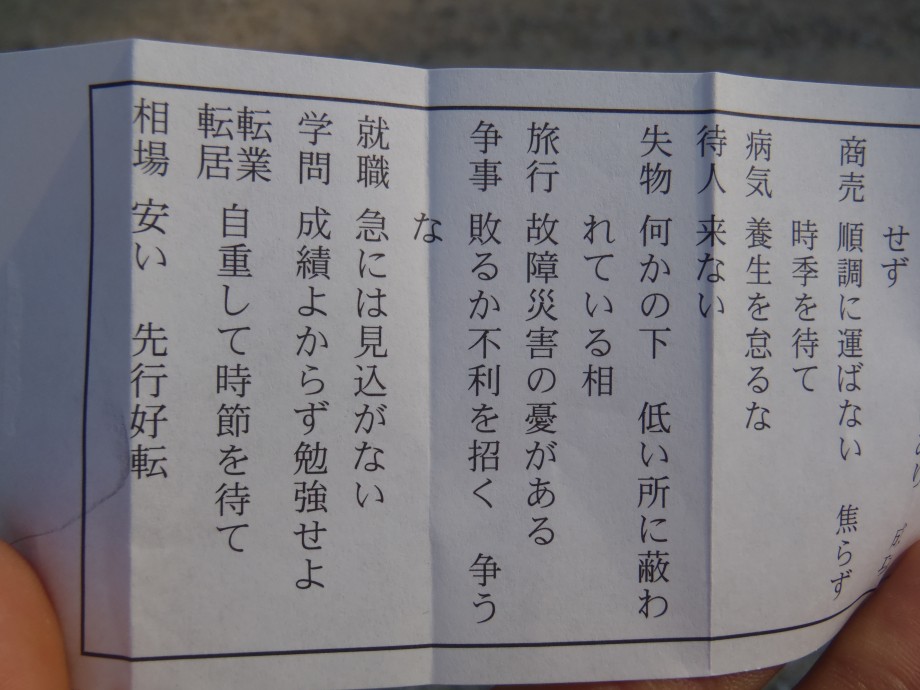 せず
商売 順調に運ばない 焦らず
時季を待て
病気 養生を怠るな
待人 来ない
失物 何かの下 低い所に蔽わ
れている相
旅行 故障災害の憂がある
争事 敗るか不利を招く 争う
な
就職 急には見込がない
学問 成績よからず勉強せよ
転業
転居 自重して時節を待て
相場 安い 先行好転